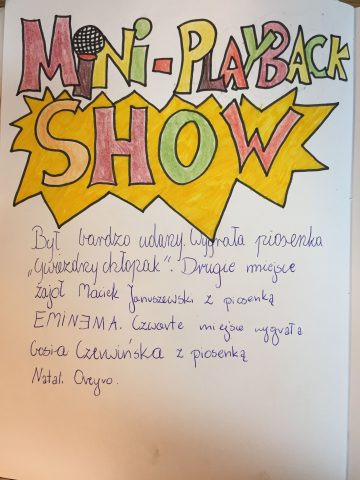 MiNi-PLAYBACK
SHOW
Był bardzo udany. Wygrała piosenka
„Gwiezdny chłopak". Drugie miejsce
zajoł Maciek Januszewski z piosenką
EMINEMA. Czwarte miejsce wygrała
Gosia Czerwińska z piosenką
Natal. Oreyro.